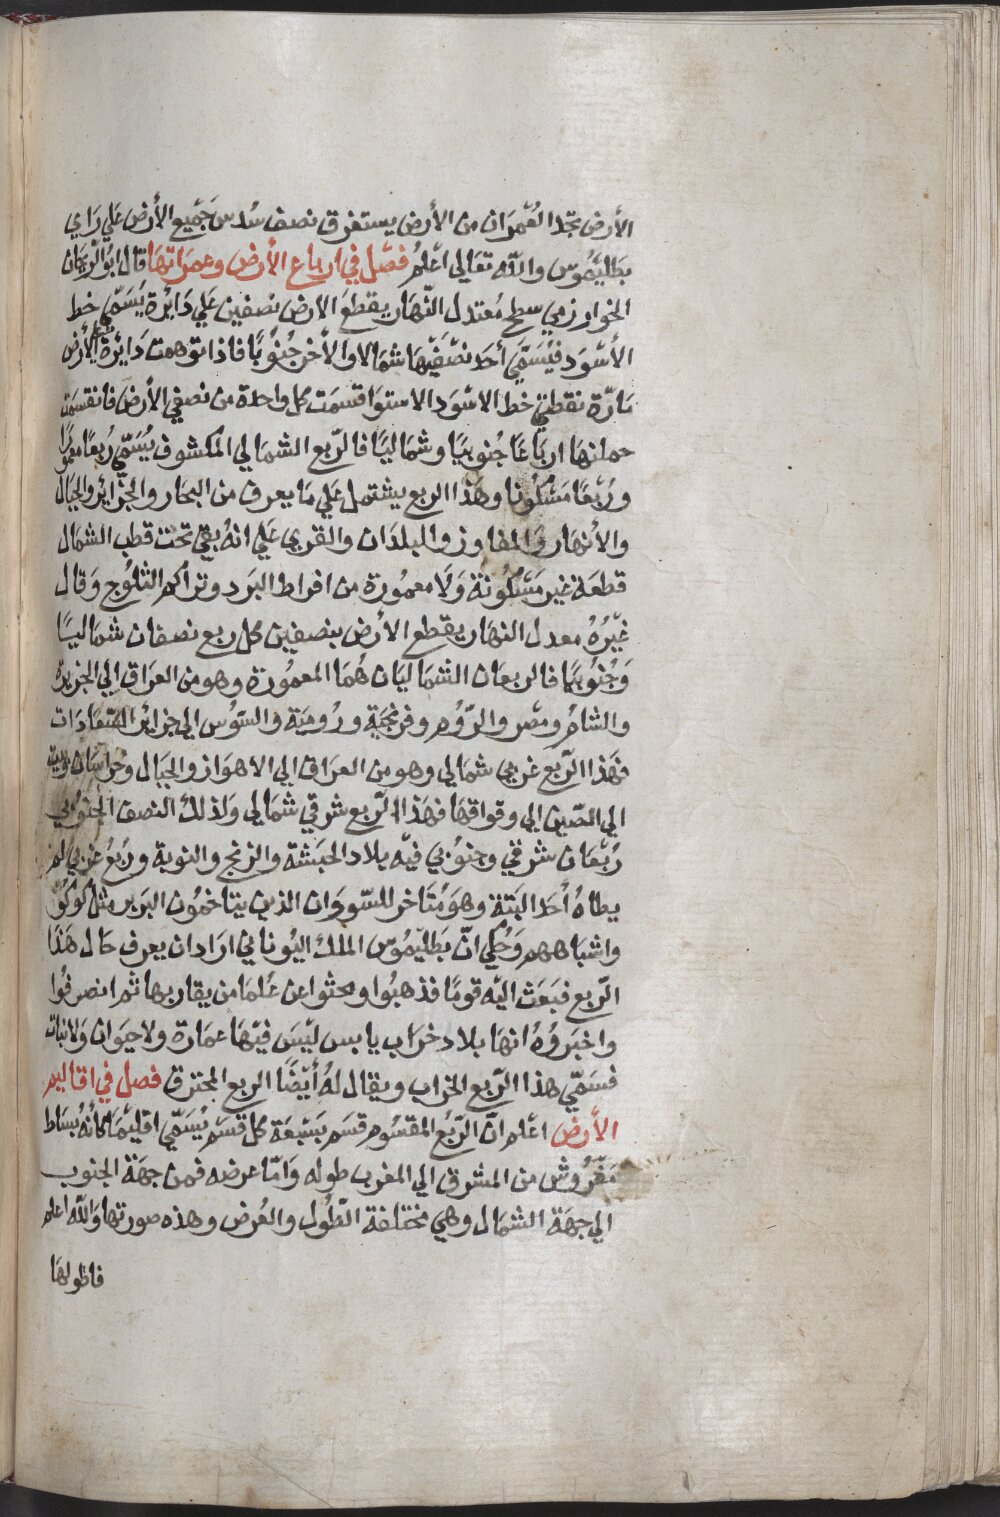 الأرض تجد العُمرَان من الأرض يستغرق نصف سُدس جَميع الأرض عَلي رَاي
بطليمُوس والله تعَالى اعْلمُ فصْل في ارباع الأرض وعمرَاتهَا قال ابو الريحَان
الخوارزمي سطح مُعتدل النّهَار يقطعَ الارض نصفين عَلي دَائرة يُسَمّي خط
الأسْوَد فيُسَمّي أحَد نصْفَيْهَا شمَالا والأخر جُنوُبًا فاذا توهمت دَائرة الأرض
مَارّة نقطتي خط الاسْوَد الاستوَا قسمَت كل واحدة من نصفي الأرض فانقسمَت
حملتهَا اربَاعَا جُنوبيَا وشماليَا فالرّبع الشمالي المكشوف يُسَمّي رُبعًا معمُورًا
ورُبْعًا مَسْكُونا وهَذا الربع يشتمل عَلي مَا يعرف من البحَار والجزَائر والجبَال
والأنهار وَالمفاوز والبلدَان والقري عَلي انهُ بقي تحت قطب الشمَال
قطعَة غير مَسْكُونَة وَلَا معمُورة من افراط البَرد وتراكم الثلوُج وَقال
غيْرُهُ معدل النهَار يقطع الأرض بنصفين كل ربع نصفان شماليَا
وَجُنوُبيًا فالربعَان الشماليَان هُمَا المعمُورة وهو من العرَاق الي الجزيرة
والشامُ ومصر والرّوُم وفرنجيَة ورُوميَة والسّوُس الي جزَائر السّعَادَات
فهَذا الرّبع غربي شمالي وهو من العرَاق الي الاهوَاز والجبَال وخراسَان وتبت
الي الصّين الي وقواقهَا فهَذا الرّبع شرقي شمَالي وَلذلك النصف الجنوُبي
رُبْعَان شرقي وجنوُبي فيْه بلاد الحَبَشة والزنج والنوبة ورُبعُ غربي لم
يطاهُ أحَد البَتة وهوَ مُتَاخر للسّوَدان الذين يتاخمُون البَربر مثل كوكوُ
واشبَاههم وَحُكي انّ بَطليمُوس الملك اليُوناني ارَاد ان يعرف حَال هَذا
الرّبع فبَعَث اليْه قومًا فذهبُوا وبحثوا عن عُلمَا من يقاربها ثم انصرفُوا
واخبَروُهُ انهَا بلاد خرَاب يابس ليْسَ فيْهَا عمَارة ولا حيَوان وَلا نبَات
فسَمّي هذا الرّبع الخرَاب ويقال لهُ أيْضًا الربع المحترق فصل في اقاليم
الأرْض اعْلم انّ الرّبُع المقسُوم قسَم بسَبْعَة كل قسْم يُسَمّي اقليْمَا كأنهُ بسَاط
مَفْرُوش من المشرق الي المغرب طوله وَامّا عرضه فمن جهَة الجنوب
الي جهَة الشمَال وهي مختلفة الطّوُل والعُرض وهذه صورتها والله اعلم
فاطولهَا